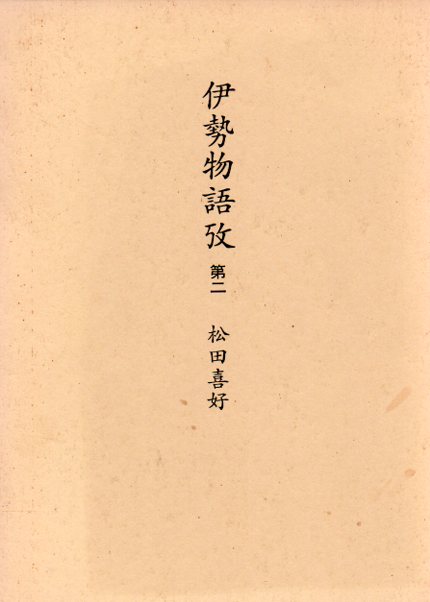 伊勢物語攷 第二 松田喜好